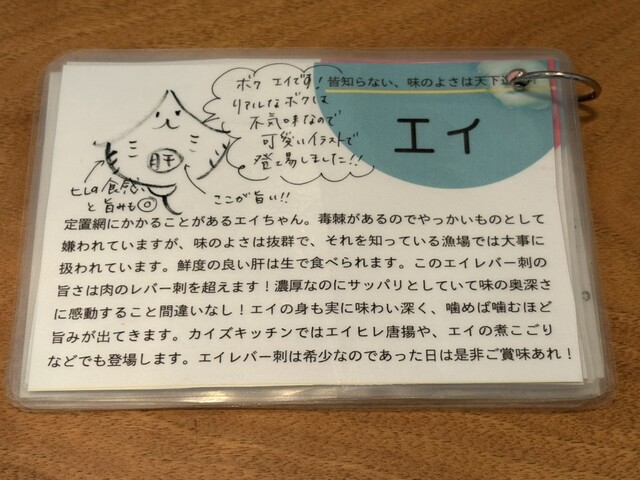 ボク エイです!
リアルなボクは
不気味なので
可愛いイラストで
登場しました!!
皆知らない、味のよさは天下
エイ
肝
ヒレの食感
と旨みも◎
ここが旨い!!
定置網にかかることがあるエイちゃん。毒棘があるのでやっかいものとして
嫌われていますが、味のよさは抜群で、それを知っている漁場では大事に
扱われています。鮮度の良い肝は生で食べられます。このエイレバー刺の
旨さは肉のレバー刺を超えます!濃厚なのにサッパリとしていて味の奥深さ
に感動すること間違いなし!エイの身も実に味わい深く、噛めば噛むほど
旨みが出てきます。カイズキッチンではエイヒレ唐揚や、エイの煮こごり
などでも登場します。エイレバー刺は希少なのであった日は是非ご賞味あれ!